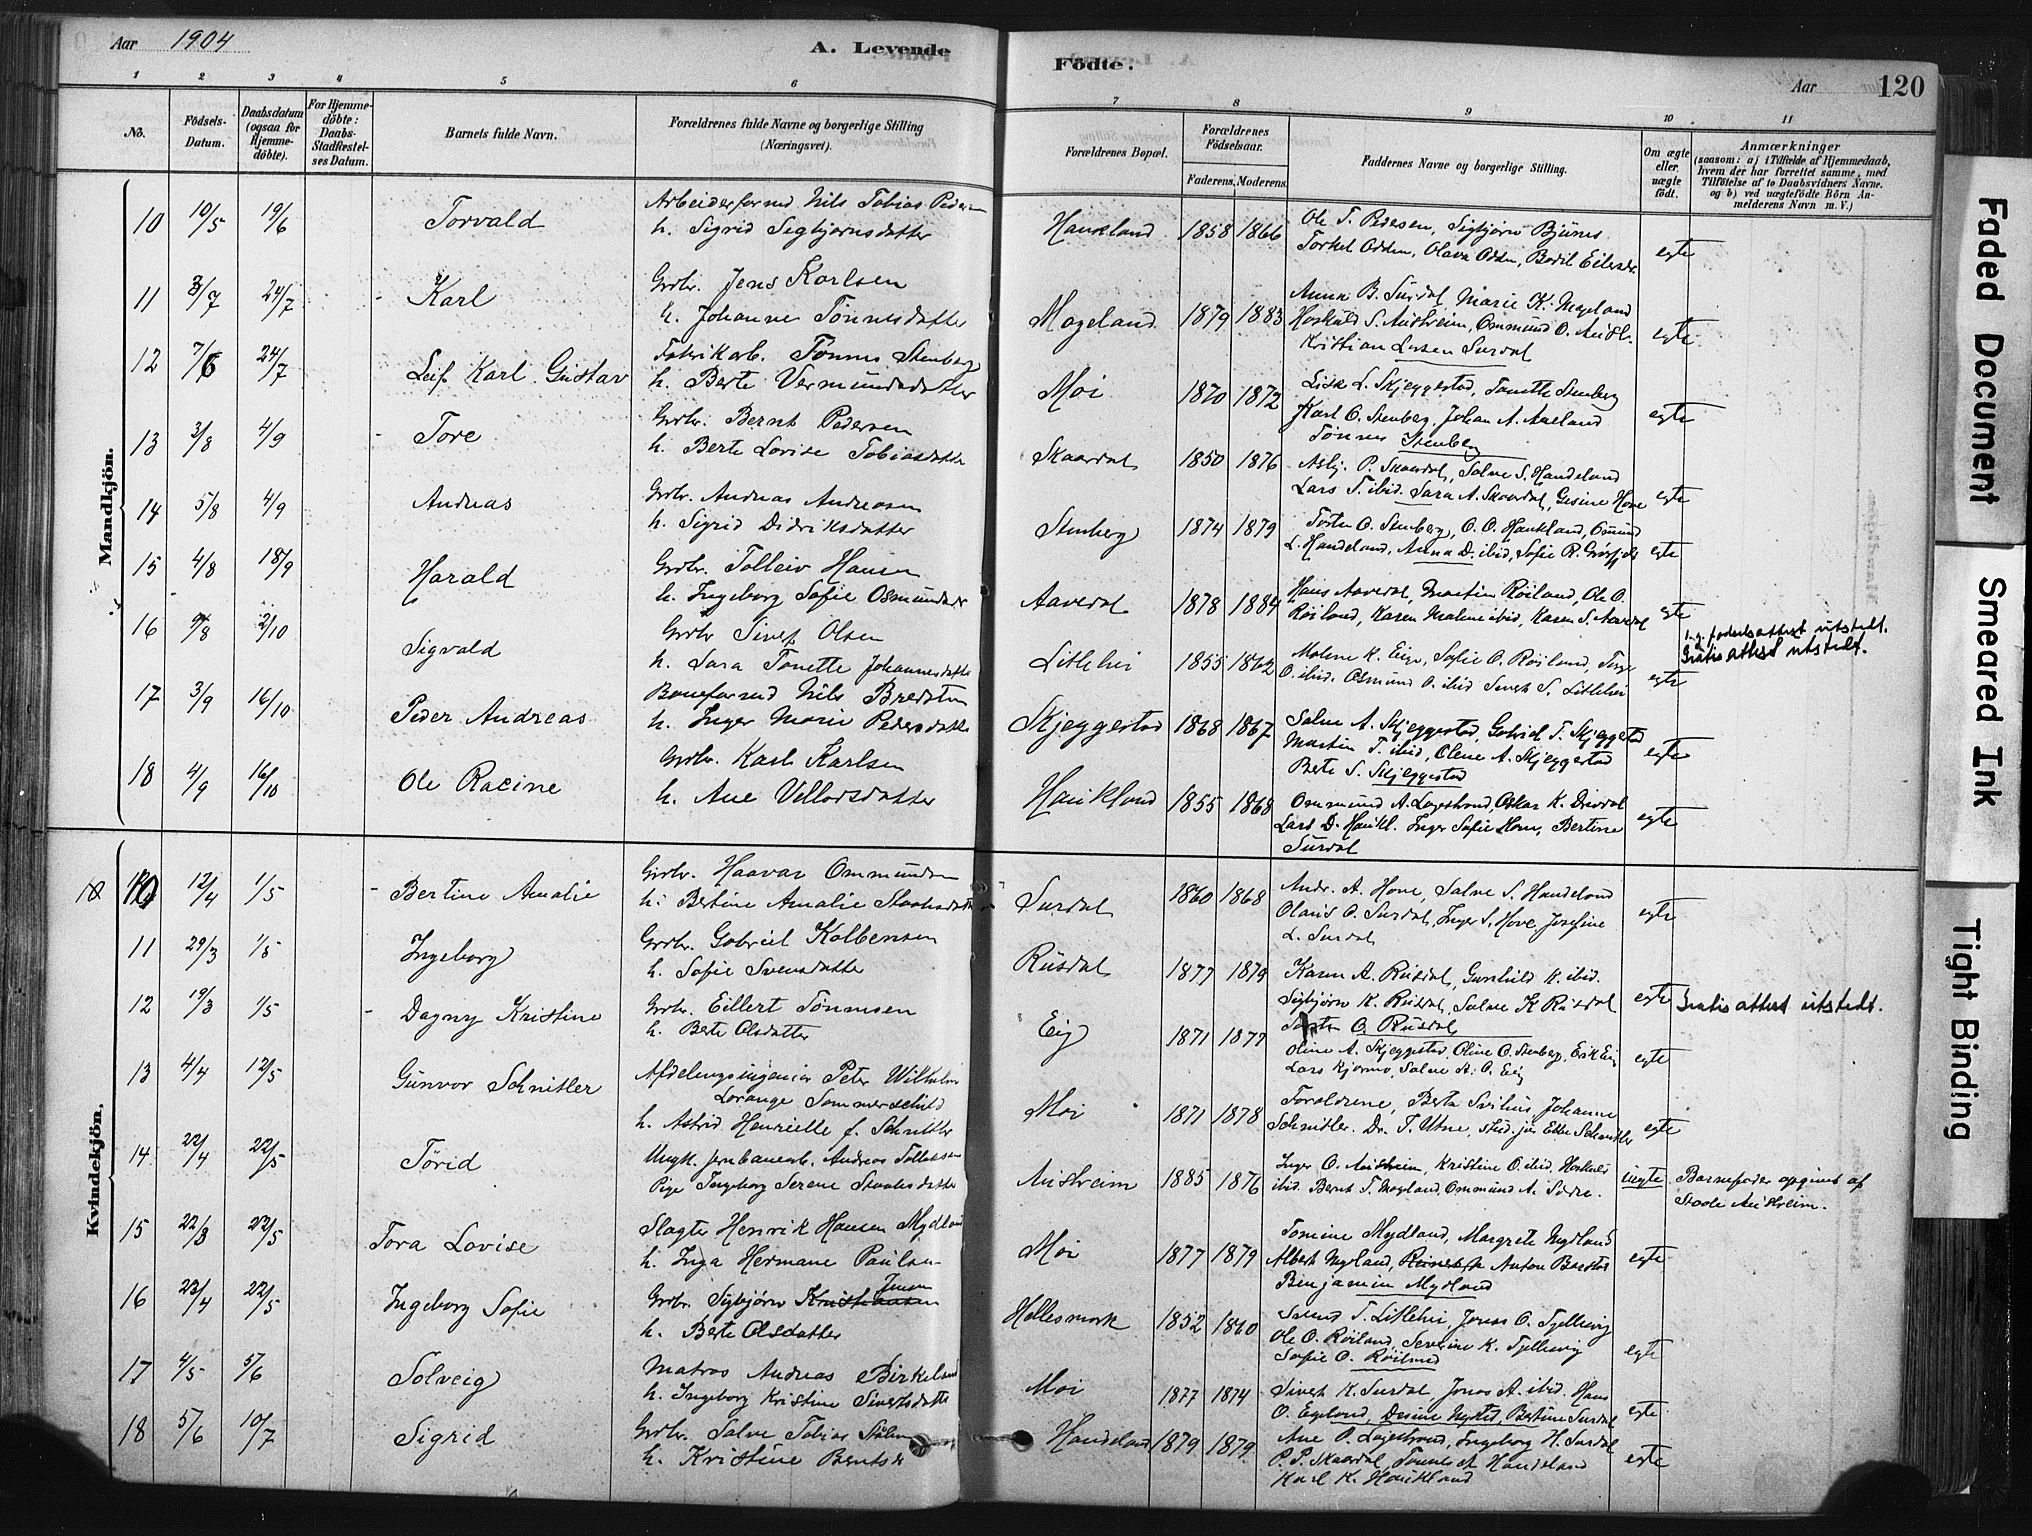 Aar 1904
A. Levende
Födte.
Aar 120
1 2 3 4 5 6 7 8 9 10 11
No.
Födsels-Datum.
Daabsdatum (ogsaa for Hjemme-döbte).
For Hjemme-döbte: Daabs-Stadfæstel-ses Datum.
Barnets fulde Navn.
Forældrenes fulde Navne og borgerlige Stilling
(Næringsvei).
Forældrenes Bopæl.
Forældrenes Födselsaar.
Faderens. Moderens.
Faddernes Navne og borgerlige Stilling.
Om ægte eller uægte födt.
Anmærkninger
(saasom: a) i Tilfælde af Hjemmedaab,
hvem der har forrettet samme, med
Tilföielse af to Daabsvidners Navne.
og b) ved uægtefödte Börn An-
melderens Navn m. V.)
Mandkjön.
10 10/5 19/6 Torvald Arbeiderformd Nils Tobias Pedersen
h. Sigrid Sigbjørnsdatter
Haukland 1858 1866 Ole T. Pedersen, Sigbjørn Bjunes
Torkel Odden, Olava Odden, Bodil Eilersdr. egte
11 3/7 24/7 Karl Grdbr. Jens Karlsen
h. Johanne Tønnesdatter
Mogeland 1879 1883 Anna B. Surdal, Marie K. Mogeland
Hoskuld S. Austreim, Ommund O. Austr.
Kristian Larsen Surdal egte
12 7/6 24/7 Leif Karl Gustav Fabrikarb. Tønnes Stenberg
h. Berte Vermundsdatter
Moi 1870 1872 Lise L. Skjeggestad, Tonette Stenberg
Karl O. Stenberg, Johan A. Aaeland
Tønnes Stenberg egte
13 3/8 4/9 Tore Grdbr. Bernt Pedersen
h. Berte Lovise Tobiasdatter
Skaardal 1850 1876 Asbj. P. Skaardal, Salve S. Handeland
Lars T. ibid. Sara A. Skaardal, Gesine Hove egte
14 5/8 4/9 Andreas Grdbr. Andreas Andreasen
h. Sigrid Didriksdatter
Stenberg 1874 1879 Torten O. Stenberg, O. O. Haukland, Omund
L. Handeland, Anna D. ibid, Sofie R. egte
15 4/8 18/9 Harald Grdbr. Tolleiv Hansen
h. Ingeborg Sofie Osmundsdr
Aavedal 1878 1884 Hans Aavedal, Martin Røiland, Ole O.
Røiland, Karen Malene ibid, Karen S. Aavedal egte
16 9/8 2/10 Sigvald Grdbr Sivert Olsen
h. Sara Tonette Johannesdatter
Litlehei 1855 1862 Malene K. Eige, Sofie O. Røiland, Terje
O. ibid. Osmund O. ibid Sivert S. Litlehei egte
1. g. fødselsattest utstelt.
Gratis attest utstelt.
17 3/9 16/10 Peder Andreas Baneformd Nils Bredsten
h. Inger Marie Pedersdatter
Skjeggestad 1868 1867 Salve A. Skjeggestad, Gabriel T. Skjeggestad
Martin T. ibid, Olene A. Skjeggestad
Berte S. Skjeggestad egte
18 4/9 16/10 Ole Racine Grdbr. Karl Karlsen
h. Ane Vellodsdatter
Haukland 1855 1868 Ommund A. Lagestrand, Oskar K. Drivdal
Lars D. Haukl. Inger Sofie Horn, Bertine
Surdal egte
Kvindekjön.
10 10 12/4 1/5 Bertine Amalie Grdbr. Haavar Ommundsen
h. Bertine Amalie
Surdal 1860 1868 Andr. A. Hove, Salve S. Handeland
Olaus O. Surdal, Inger S. Hove, Josefine
L. Surdal egte
11 29/3 1/5 Ingeborg Grdbr. Gabriel Kolbensen
h. Sofie Svensdatter
Rusdal 1877 1879 Karen A. Rusdal, Gunhild K. ibid.
Sigbjørn K. Rusdal, Salve K Rusdal
O. Rusdal egte Gratis attest utstelt.
12 19/3 1/5 Dagny Kristine Grdbr. Eillert Tønnesen
h. Berte Olsdatter
Eig 1871 1879 Oline A. Skjeggestad, Oline O. Stenberg, Erik Eig
Lars Kjørmo, Salve A. O. Eig egte
13 4/4 12/5 Gunvor Schnitler Afdelingsingeniør Peter Wilhelm
Lorange Sommerschild
h. Astrid Henrielle f. Schnitler
Moi 1871 1878 Forældrene, Berta Svilius, Johanne
Schnitler. Dr. T. Utne, stud. jur Ebbe Schnitler egte
14 22/4 22/5 Törid Ungk. Jernbanearb. Andreas Tollaksen
Pige Ingeborg Serene Staalesdatter
Austreim 1885 1876 Inger O. Austreim, Kristine O. ibid, Hoskuld
ibid. Bernt T. Mogland, Ommund A. Sædre. uegte Barnefader opgivet af
Staale Austreim.
15 22/3 22/5 Tora Lovise Slagter Henrik Hansen Mydland
h. Inga Hermane Paulsen
Moi 1877 1879 Tomine Mydland, Margrete Mydland
Albert Mydland, Anton
Benjamin Mydland egte
16 23/4 22/5 Ingeborg Sofie Grdbr. Sigbjørn Kristiansen Jensen
h. Berte Olsdatter
Hellesmork 1852 1860 Svend T. Litlehei, Jonas O. Tjellesvig
Ole O. Røiland, Severine K. Tjellesvig
Sofie O. Røiland egte
17 4/5 5/6 Solveig Matros Andreas Birkeland
h. Ingeborg Kristine Sivertsdatter
Moi 1877 1874 Sivert K. Surdal, Jonas A. ibid. Hans
O. Egeland, Nysted, Bertine Surdal egte
18 5/6 10/7 Sigrid Grdbr. Salve Tobias
h. Kristine Bentsdr
Handeland 1879 1879 Ane P. Lagestrand, Ingeborg H. Surdal
P. P. Skaardal, Tønnes A. Handeland
Karl K. Haukland egte
Faded Document
Smeared Ink
Tight Binding